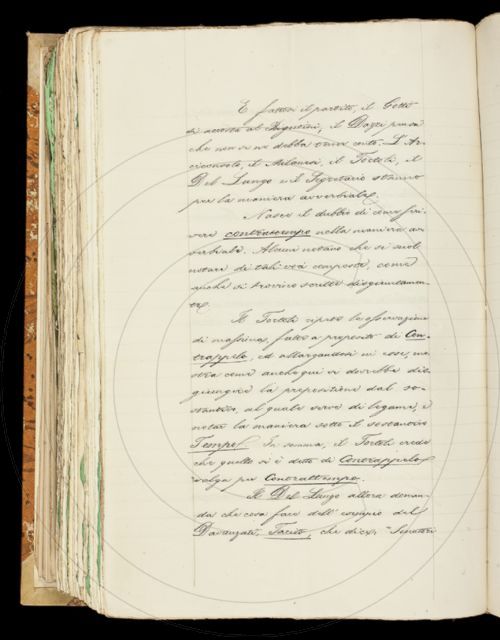 E fattosi il partito, il Cotti
si accosta al Rigutini, il Dazzi pensa
che non se ne debba tener conto. L'Ar-
ciconsolo, il Milanesi, il Tortoli, il
Del Lungo e il Segretario stanno
per la maniera avverbiale.
Nasce il dubbio di come scri-
vere contrattempo nella maniera av-
verbiale. Alcuni notano che si suol
notare di tali voci composte, come
anche si trovino scritte disgiuntamen-
te.
Il Tortoli ripete le osservazioni
di massima, fatte a proposito di Con-
trappelo, ed allargandosi in esse, mo-
stra come anche qui si dovrebbe dis-
giungere la preposizione dal so-
stantivo, al quale serve di legame, e
notar la maniera sotto il sostantivo
Tempo. In somma, il Tortoli crede
che quello si è detto di Contrappelo
valga per Contrattempo.
Il Del Lungo allora doman-
da che cosa fare dell'esempio del
Davanzati, Tacito, che dice, "Senatori